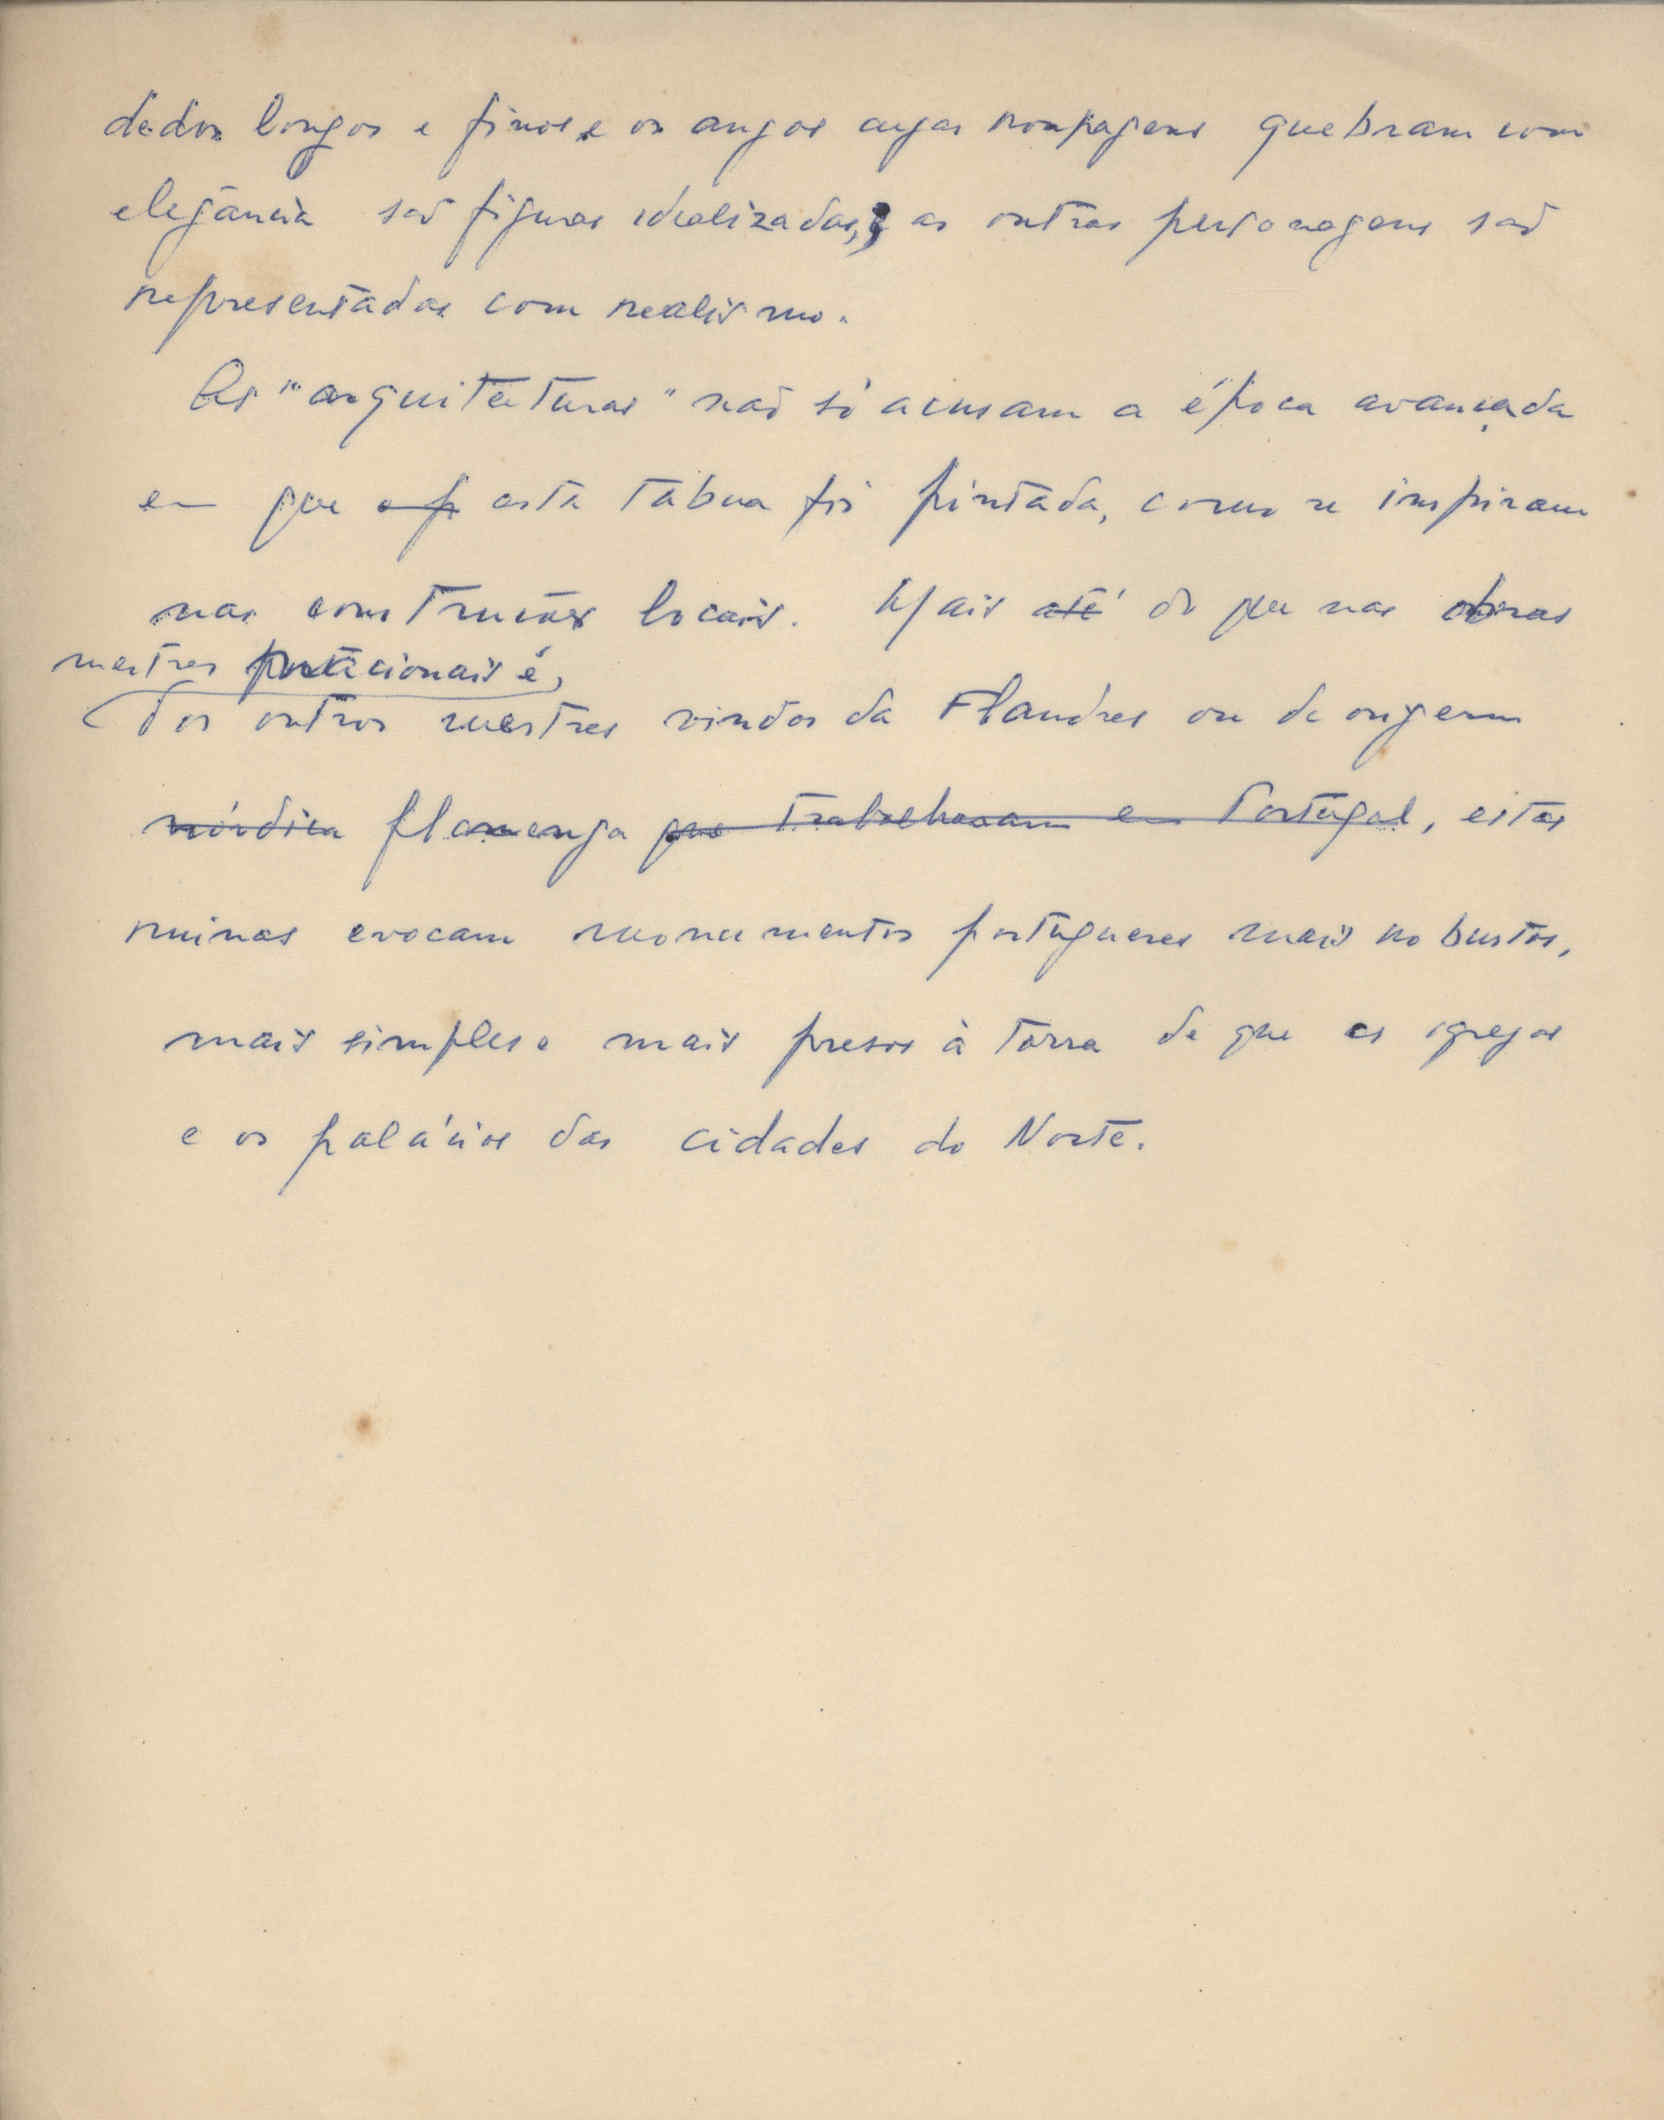 dedos longos e finos e os anjos cujas roupagens quebram com
elegância são figuras idealizadas, as outras personagens são
representadas com realismo.
As "arquitecturas" não só acusam a época avançada
em que o p esta tábua foi pintada, como se inspiram
nas construções locais. Mais até do que nas obras
mestres é,
dos outros mestres vindos da Flandres ou de origem
nórdica flamenga que trabalhavam em Portugal, estas
ruinas evocam monumentos portugueses mais robustos,
mais simples e mais presos à terra do que as igrejas
e os palácios das cidades do Norte.